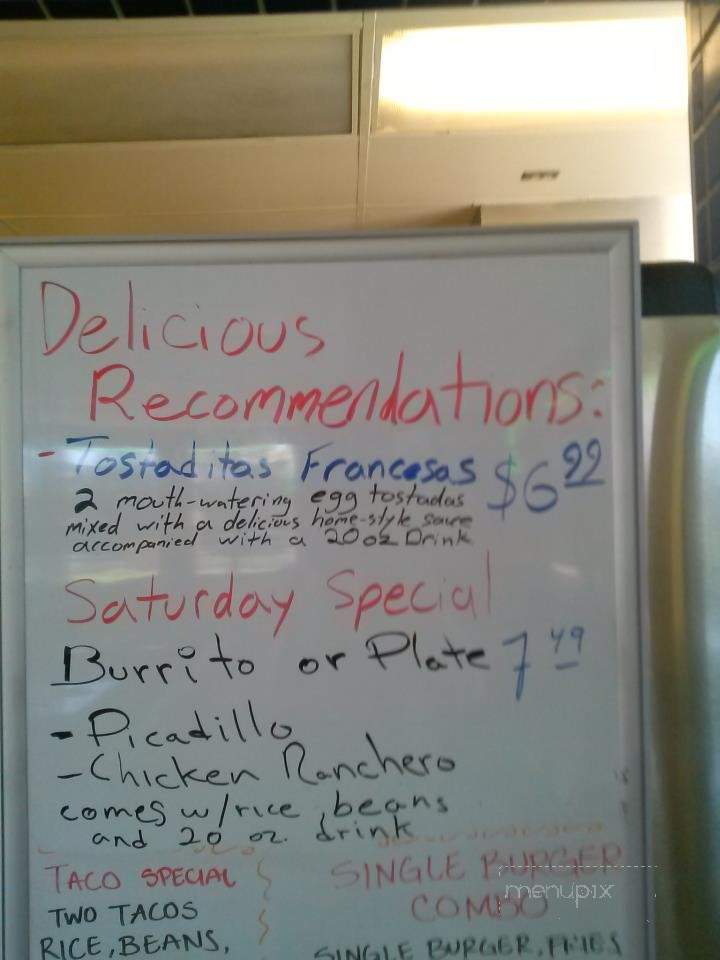 Delicious
Recommendations:
- Tostaditas Francesas $6 99
2 mouth-watering egg tostadas
mixed with a delicious home-style sauce
accompanied with a 20oz Drink
Saturday Special
Burrito or Plate 7 49
- Picadillo
- Chicken Ranchero
comes w/rice beans
and 20 oz. drink
TACO SPECIAL
TWO TACOS
RICE, BEANS,
SINGLE BURGER
COMBO
SINGLE BURGER, FRIES
menupix